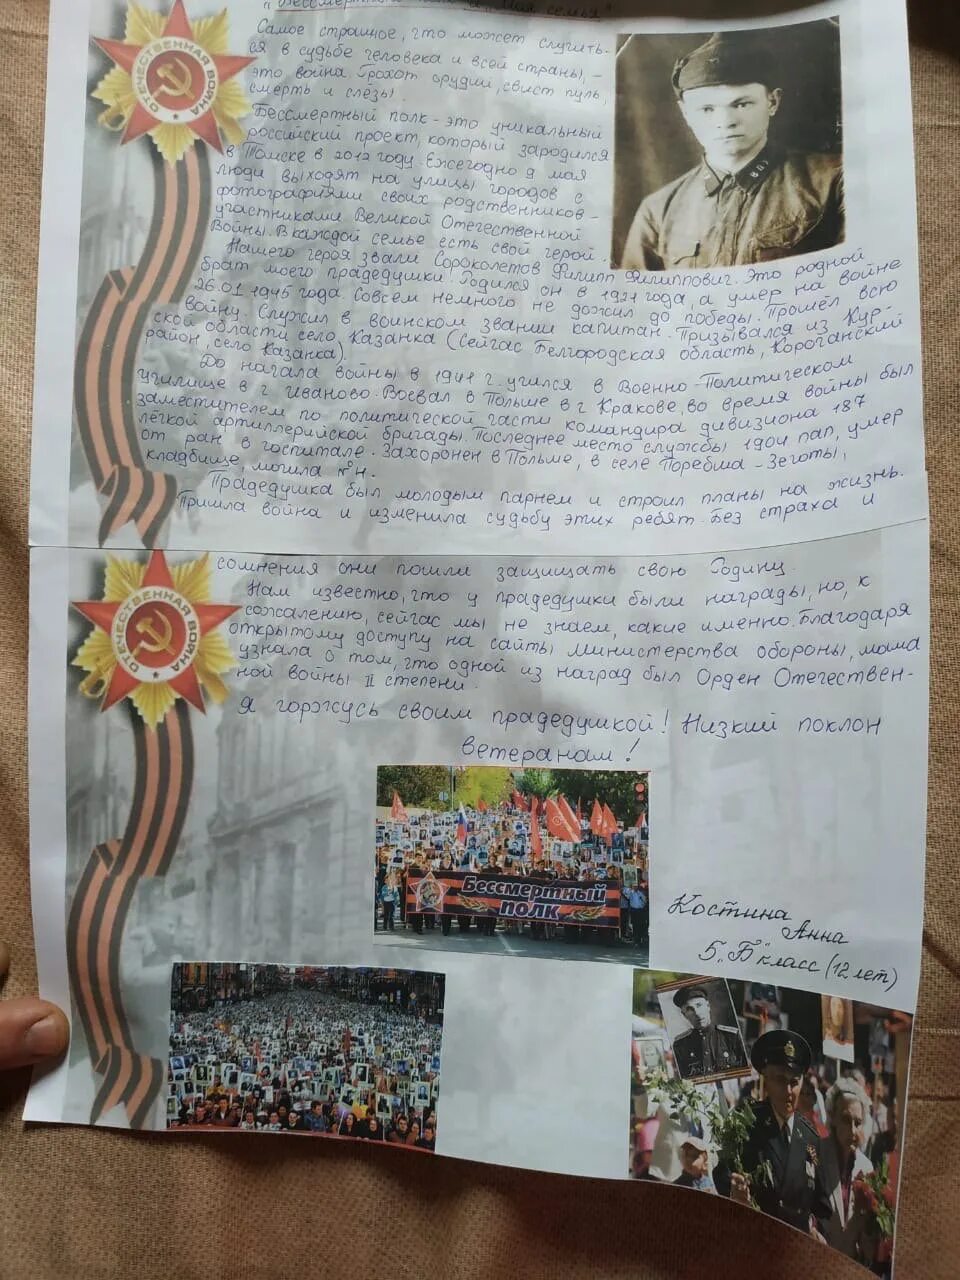 "Бессмертный полк и моя семья"
Самое страшное, что может случить-
ся в судьбе человека и всей страны, -
это война. Грохот орудий, свист пуль,
смерть и слёзы.
Бессмертный полк - это уникальный
российский проект, который зародился
в Томске в 2012 году. Ежегодно 9 мая
люди выходят на улицы городов с
фотографиями своих родственников -
участниками Великой Отечественной
Войны. В каждой семье есть свой герой.
Нашего героя звали Сороколетов Филипп Филиппович. Это родной
брат моего прадедушки. Родился он в 1921 году, а умер на войне
26.01.1945 года. Совсем немного не дожил до победы. Прошёл всю
войну. Служил в воинском звании капитан. Призывался из Кур-
ской области село Казанка (сейчас Белгородская область, Корочанский
район, село Казанка).
До начала войны в 1941 г. учился в Военно-Политическом
училище в г. Иваново. Воевал в Польше в г. Кракове, во время войны был
заместителем по политической части командира дивизиона 187
лёгкой артиллерийской бригады. Последнее место службы 1904 пап, умер
от ран в госпитале. Захоронен в Польше, в селе Порембша-Зеготы,
кладбище, могила №4.
Прадедушка был молодым парнем и строил планы на жизнь.
Пришла война и изменила судьбу этих ребят. Без страха и
сомнения они пошли защищать свою Родину.
Нам известно, что у прадедушки были награды, но, к
сожалению, сейчас мы не знаем, какие именно. Благодаря
открытому доступу на сайты министерства обороны, мама
узнала о том, что одной из наград был Орден Отечествен-
ной войны II степени.
Я горжусь своим прадедушкой! Низкий поклон
ветеранам!
ОТЕЧЕСТВЕННАЯ ВОЙНА
ОТЕЧЕСТВЕННАЯ ВОЙНА
Бессмертный
полк
Костина
Анна
5 "Б" класс (12 лет)